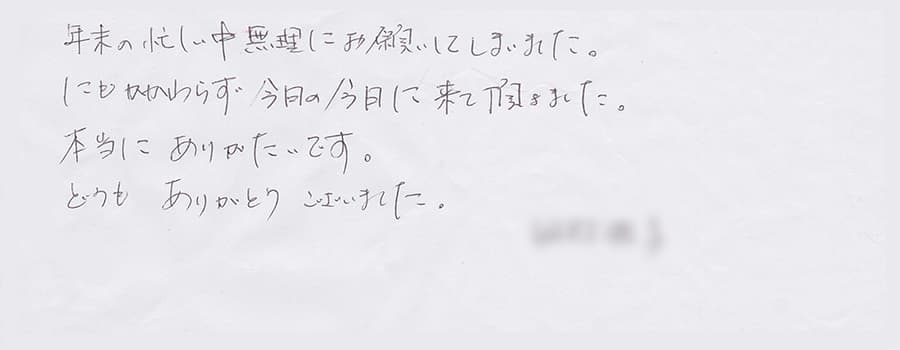 年末の忙しい中無理にお願いしてしまいました。
にもかかわらず今日の今日に来て頂きました。
本当にありがたいです。
どうもありがとうございました。